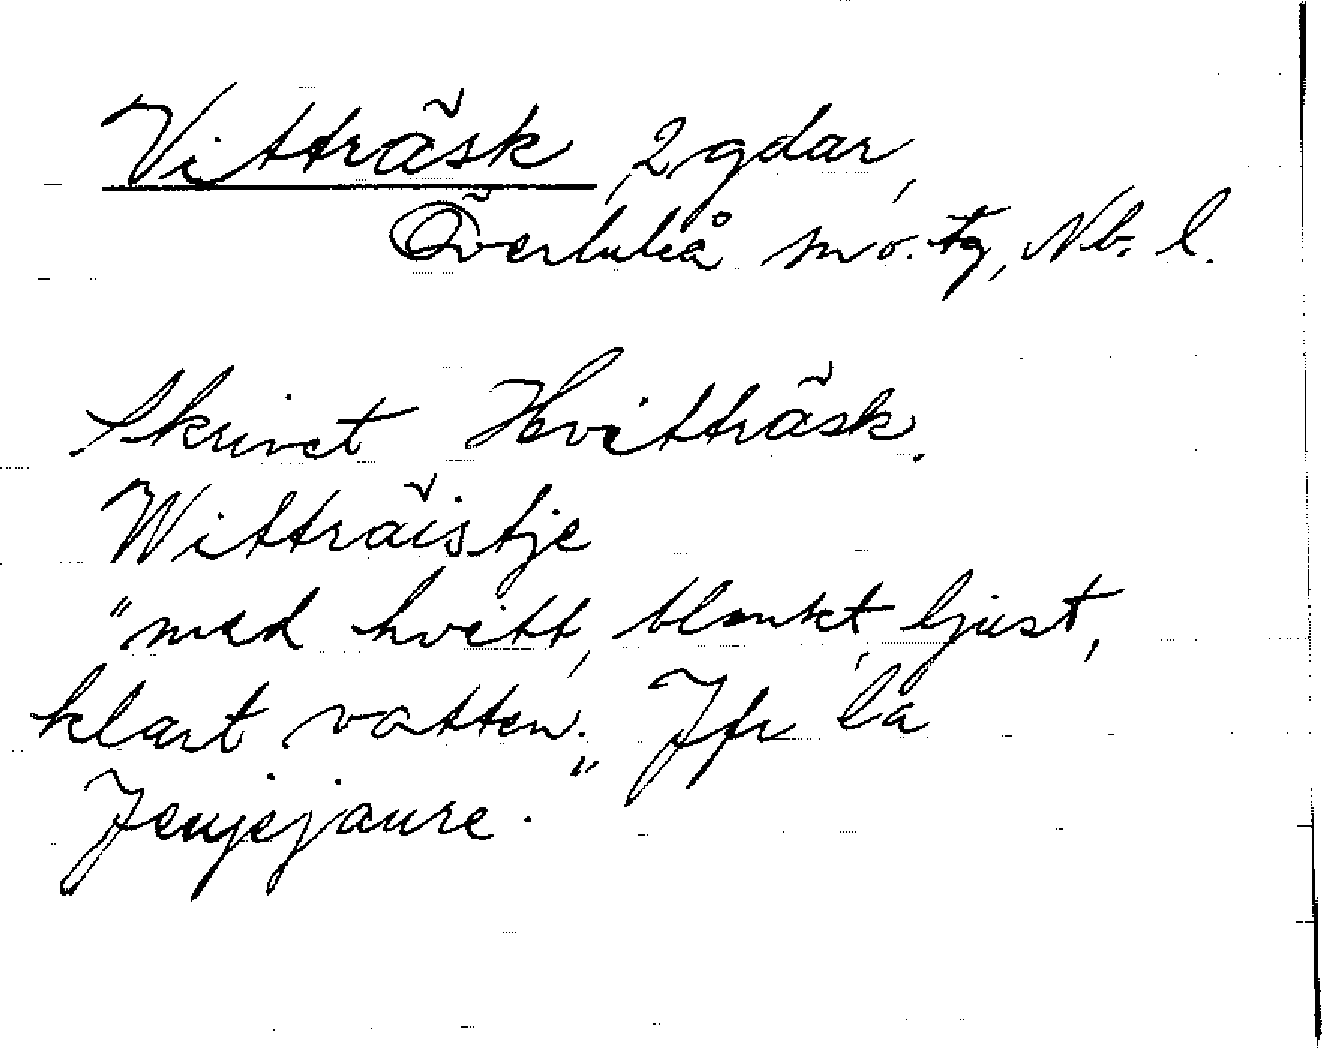 Vitträsk, 2 gdar,
Överluleå sn o. tg, Nb. l.
Skrivet Hvitträsk.
Witträistje
"med hvitt, blankt, ljust,
klart vatten." Jfr la
Jeujejaure.